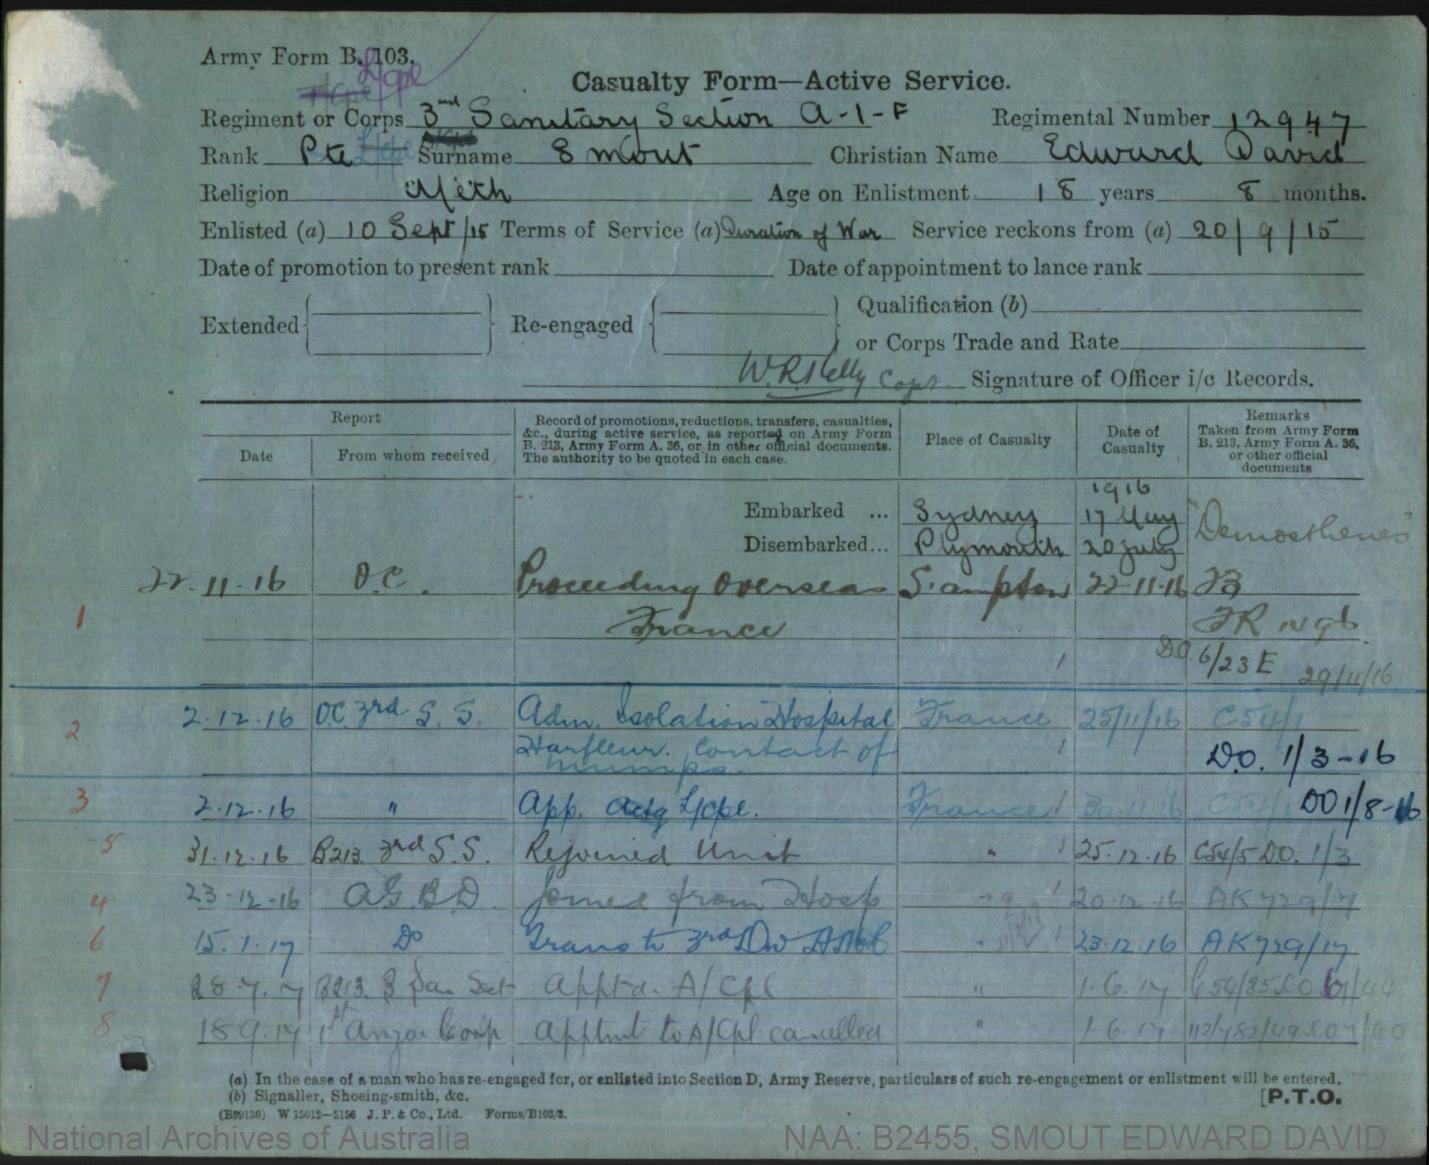 Army Form B. 103.
L/Cpl
Casualty Form—Active Service.
Regiment or Corps 3rd Sanitary Section A-I-F Regimental Number 12947
Rank Pte L/Cpl Surname Smout Christian Name Edward David
Religion Meth Age on Enlistment 18 years 8 months.
Enlisted (a) 10 Sept/15 Terms of Service (a) Duration of War Service reckons from (a) 20/9/15
Date of promotion to present rank Date of appointment to lance rank
Extended Re-engaged Qualification (b)
or Corps Trade and Rate
W.R. Kelly Capt. Signature of Officer i/c Records.
Report
Date From whom received
Record of promotions, reductions, transfers, casualties,
&c., during active service, as reported on Army Form
B. 213, Army Form A. 36, or in other official documents.
The authority to be quoted in each case.
Place of Casualty
Date of
Casualty
Remarks
Taken from Army Form
B. 213, Army Form A. 36,
or other official
documents
1916
Embarked ... Sydney 17 May "Demosthenes"
Disembarked... Plymouth 20 July
22.11.16 O.C. Proceeding Overseas S'ampton 22-11-16
1 France
DO 6/23 E 29/11/16
2 2.12.16 OC 3rd S.S. Adm. Isolation Hospital France 25/11/16 C54/1
Harfleur. Contact of DO. 1/3-16
mumps.
3 2.12.16 " App. Actg L/Cpl. France 30.11.16 C54/1 DO 1/8-16
5 31.12.16 B213 3rd S.S. Rejoined Unit " 25.12.16 C54/5 DO. 1/3
4 23-12-16 AG B.D. Joined from Hosp 20.12.16 AK729/7
6 15.1.17 Do Trans to 3rd Div " 23.12.16 AK729/17
7 28.7.17 B213. 3 San Sect Apptd. A/Cpl " 1.6.17
8 18.9.17 1st Anzac Corp Apptmt to A/Cpl cancelled " 1.6.17
(a) In the case of a man who has re-engaged for, or enlisted into Section D, Army Reserve, particulars of such re-engagement or enlistment will be entered.
(b) Signaller, Shoeing-smith, &c.
[P.T.O.
(B99130) W 15012—5156 J. P. & Co., Ltd. Forms/B103/3.
National Archives of Australia NAA: B2455, SMOUT EDWARD DAVID